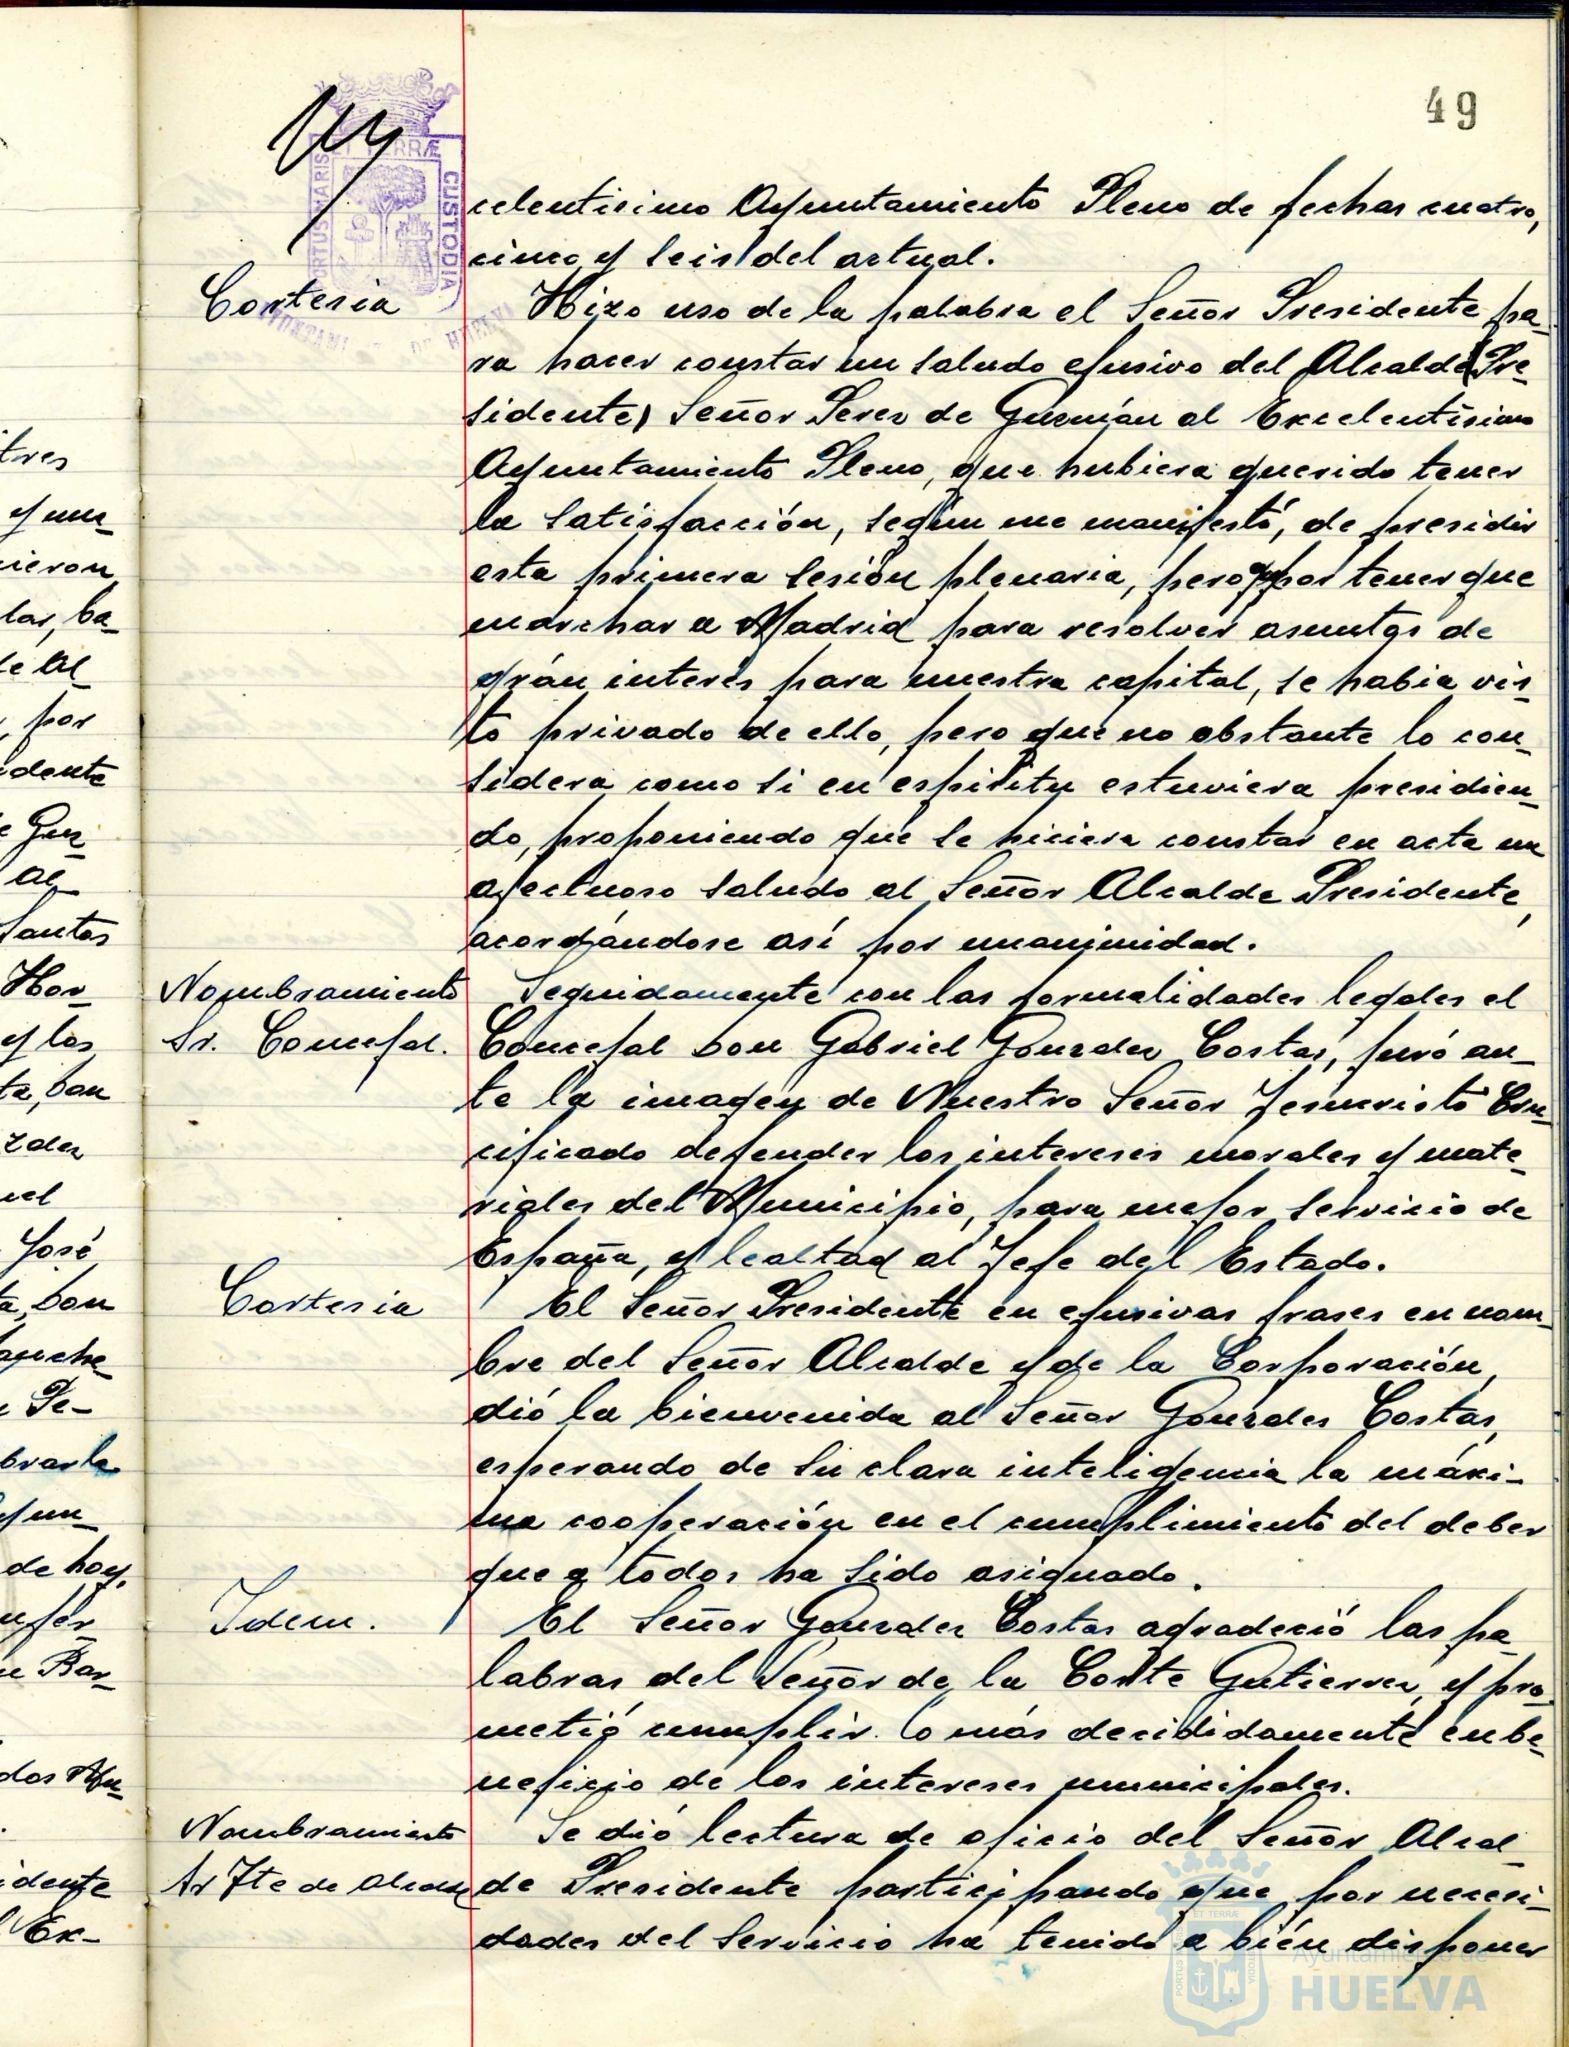 49
celentisimo Ayuntamiento Pleno de fechas cuatro,
cinco y seis del actual.
Cortesia
Hizo uso de la palabra el Señor Presidente pa-
ra hacer constar un saludo efusivo del Alcalde (Pre-
sidente) Señor Perez de Guzmán al Excelentísimo
Ayuntamiento Pleno, que hubiera querido tener
la satisfacción, según me manifestó, de presidir
esta primera sesión plenaria, pero por tener que
marchar a Madrid para resolver asuntos de
grán interés para nuestra capital, se habia vis-
to privado de ello, pero que no obstante lo con-
sidera como si en espiritu estuviera presidien-
do, proponiendo que se hiciera constar en acta un
afectuoso saludo al Señor Alcalde Presidente,
acordándose así por unanimidad.
Nombramiento
Sr. Concejal.
Seguidamente con las formalidades legales el
Concejal Don Gabriel Gonzalez Costas, juró an-
te la imagen de Nuestro Señor Jesucristo Cru-
cificado defender los intereses morales y mate-
riales del Municipio, para mejor servicio de
España, y lealtad al Jefe del Estado.
Cortesia
El Señor Presidente en efusivas frases en nom-
bre del Señor Alcalde y de la Corporación,
dió la bienvenida al Señor Gonzales Costas,
esperando de su clara inteligencia la máxi-
ma cooperación en el cumplimiento del deber
que a todos ha sido asignado.
Idem.
El Señor Gonzalez Costas agradeció las pa
labras del Señor de la Corte Gutierrez, y pro-
metió cumplir lo más decididamente en be-
neficio de los intereses municipales.
Nombramiento
Sr Tte de Alcalde
Se dió lectura de oficio del Señor Alcal-
de Presidente participando que por necesi-
dades del servicio ha tenido a bién disponer
Ayuntamiento de
HUELVA